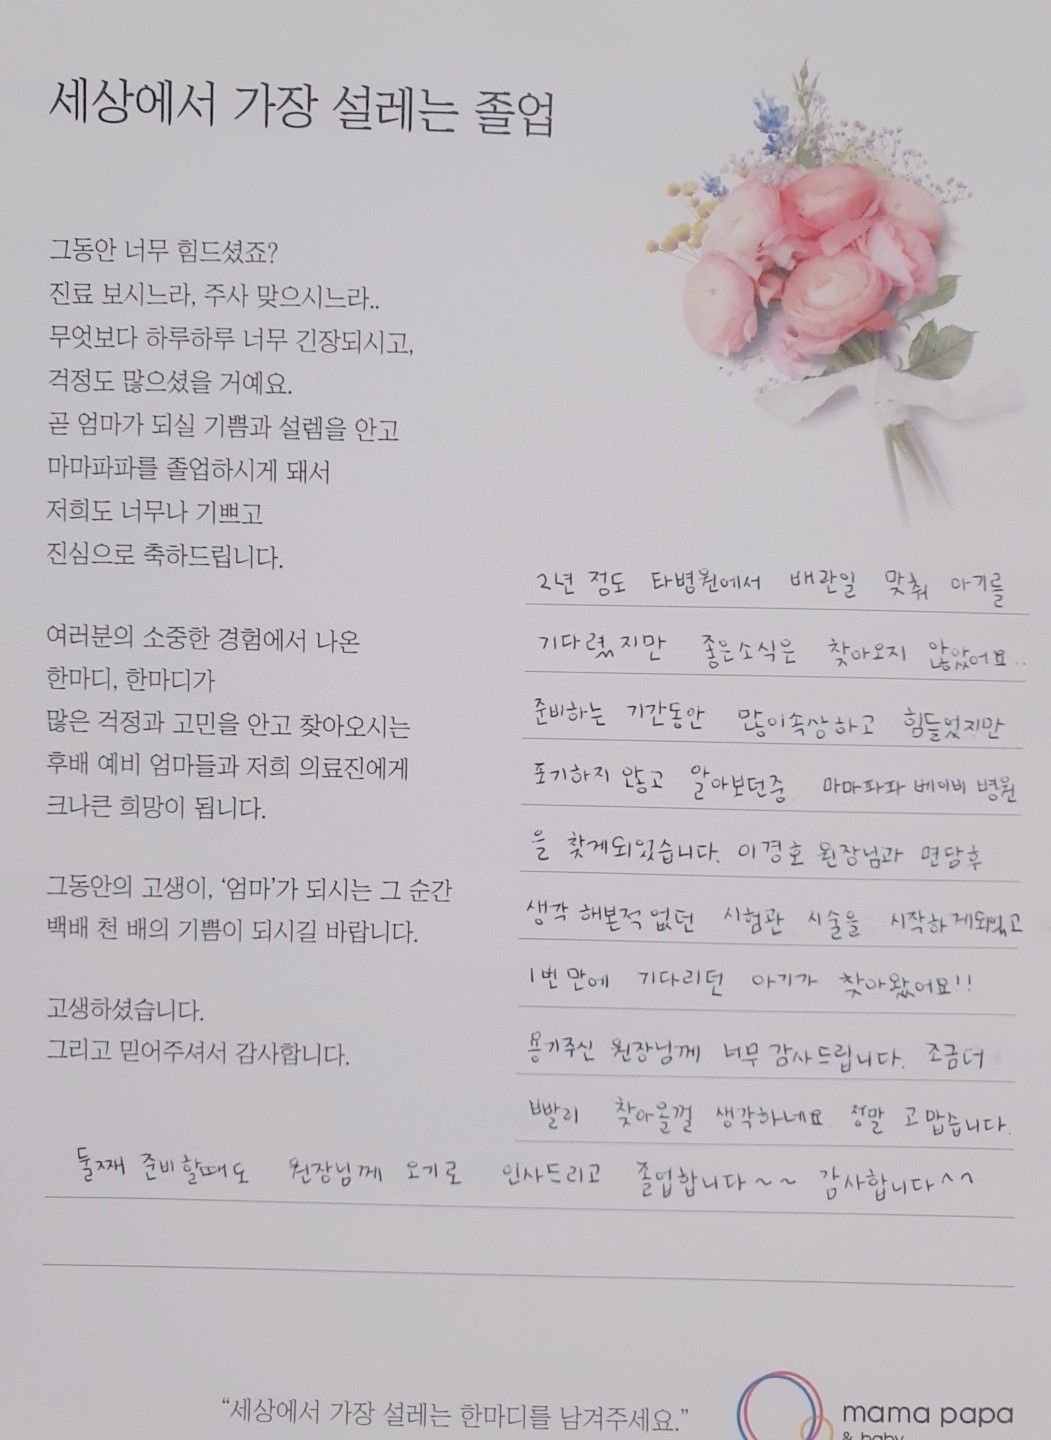 세상에서 가장 설레는 졸업
그동안 너무 힘드셨죠?
진료 보시느라, 주사 맞으시느라..
무엇보다 하루하루 너무 긴장되시고,
걱정도 많으셨을 거예요.
곧 엄마가 되실 기쁨과 설렘을 안고
마마파파를 졸업하시게 돼서
저희도 너무나 기쁘고
진심으로 축하드립니다.
여러분의 소중한 경험에서 나온
한마디, 한마디가
많은 걱정과 고민을 안고 찾아오시는
후배 예비 엄마들과 저희 의료진에게
크나큰 희망이 됩니다.
그동안의 고생이, ‘엄마’가 되시는 그 순간
백배 천 배의 기쁨이 되시길 바랍니다.
고생하셨습니다.
그리고 믿어주셔서 감사합니다.
2년 정도 타병원에서 배란일 맞춰 아기를
기다렸지만 좋은소식은 찾아오지 않았어요..
준비하는 기간동안 많이속상하고 힘들었지만
포기하지 않고 알아보던중 마마파파 베이비 병원
을 찾게되었습니다. 이경호 원장님과 면담후
생각 해본적 없던 시험관 시술을 시작하게되었고
1번만에 기다리던 아기가 찾아왔어요!!
용기주신 원장님께 너무 감사드립니다. 조금더
빨리 찾아올껄 생각하네요 정말 고맙습니다.
둘째 준비할때도 원장님께 오기로 인사드리고 졸업합니다~~ 감사합니다^^
“세상에서 가장 설레는 한마디를 남겨주세요.”
mama papa
& baby